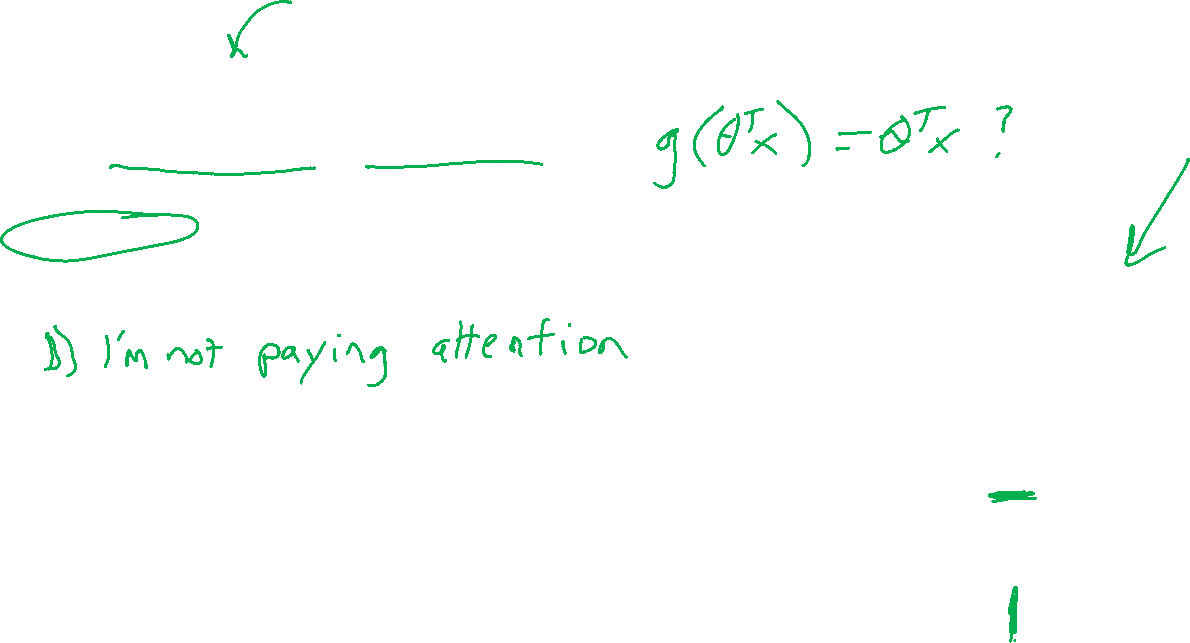 g(θᵀx) = θᵀx ?
D) I'm not paying attention